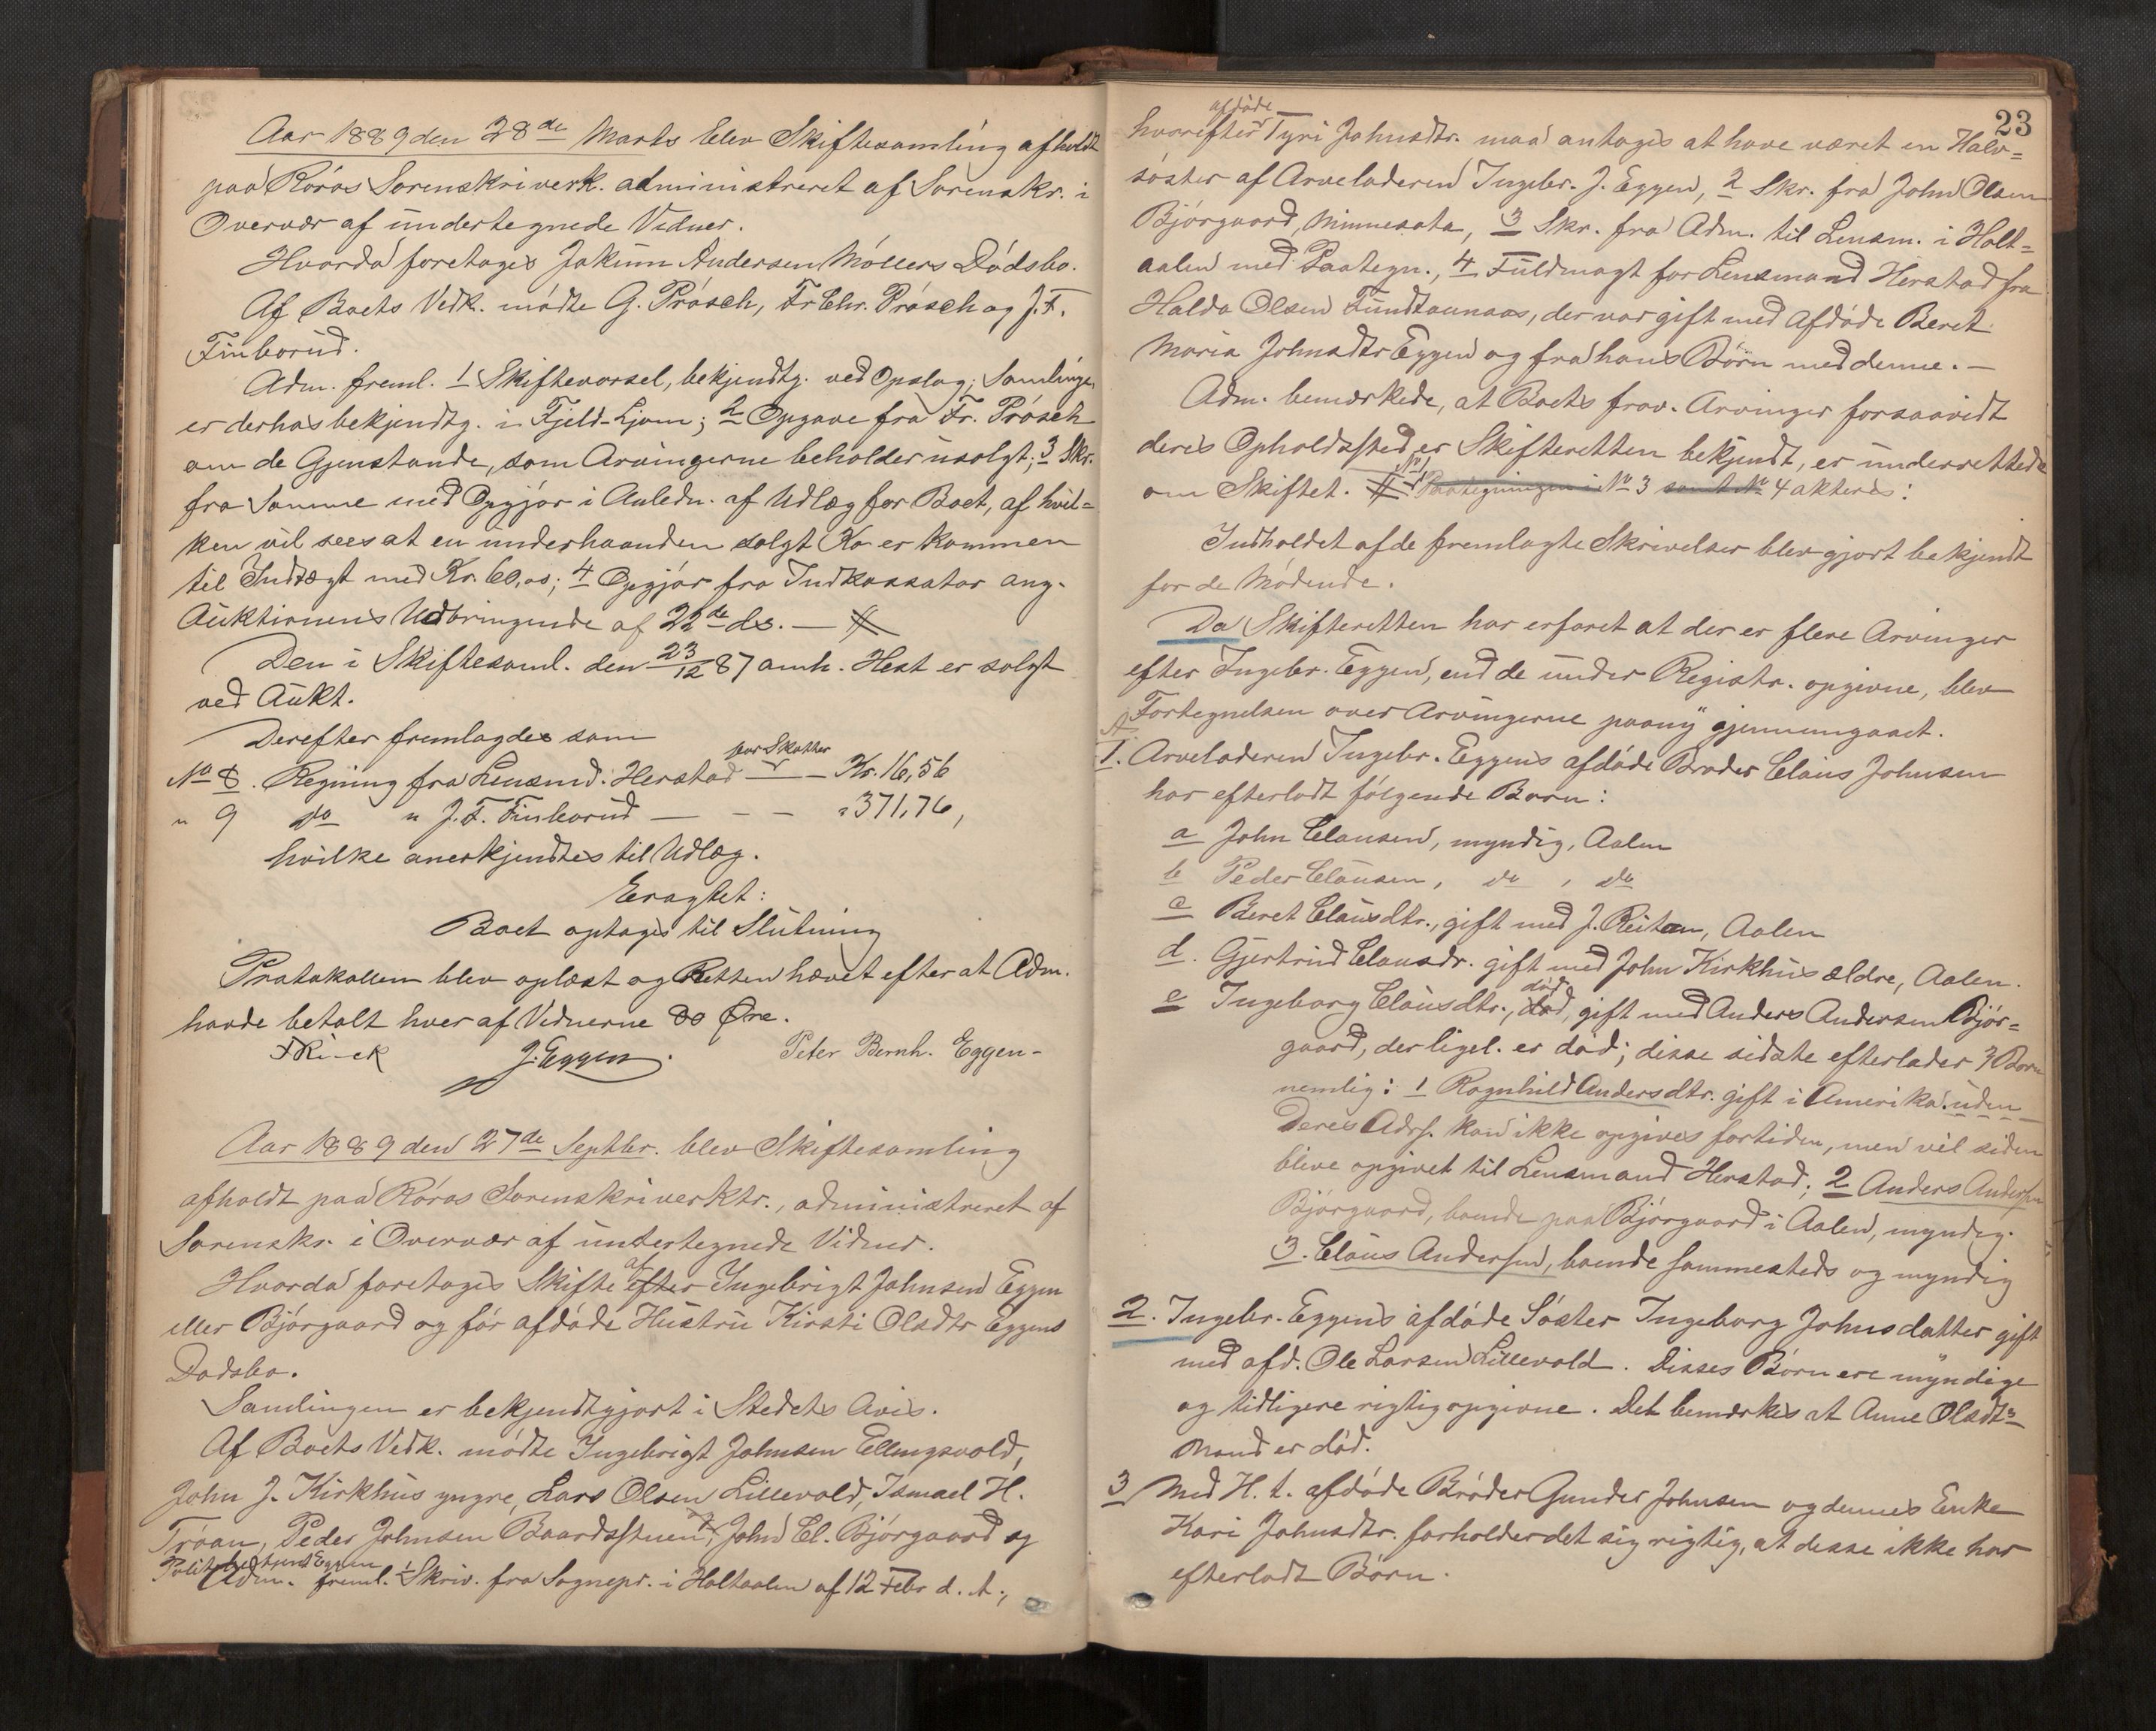 Aar 1889 den 28de Marts blev Skiftesamling afholdt
paa Röros Sorenskriverk. administreret af Sorenskr. i
Overvær af undertegnede Vidner.
Hvorda foretoges Jakum Andersen Möllers Dödsbo.
Af Boets Vedk. mödte G. Prösch, Fr. Chr. Prösch og J. F.
Finborud.
Adm. freml. 1 Skiftevarsel, bekjendtg. ved Opslag; Samlingen
er derhos bekjendtg. i Fjeld-Ljom; 2 Opgave fra Fr. Prösch
om de Gjenstande, som Arvingerne beholder usolgt; 3 Skr.
fra Samme med Opgjör i Anledn. af Udlæg for Boet, af hvil=
ken vil sees at en underhaanden solgt Ko er kommen
til Indtægt med Kr. 60,00; 4 Opgjör fra Indkassator ang.
Auktionens Udbringende af 22de ds. —
Den i Skiftesaml. den 23/12 87 omh. Hest er solgt
ved Aukt.
Derefter fremlagdes som
No 8. Regning fra Lensmd. Herstad for Skatter — Kr. 16,56
" 9 do " J. F. Finborud — — — " 371,76,
hvilke anerkjendtes til Udlæg.
Eragtet:
Boet optages til Slutning
Protokollen blev oplæst og Retten hævet efter at Adm.
havde betalt hver af Vidnerne 80 Øre.
J. Eggen. Peter Bernh. Eggen
Aar 1889 den 27de Septbr. blev Skiftesamling
afholdt paa Röros Sorenskriverktr., administreret af
Sorenskr. i Overvær af undertegnede Vidner.
Hvorda foretoges Skifte af efter Ingebrigt Johnsen Eggen
eller Bjørgaard og før afdöde Hustru Kirsti Olsdtr Eggens
Dödsbo.
Samlingen er bekjendtgjort i Stedets Avis.
Af Boets Vedk. mödte Ingebrigt Johnsen Ellingsvold,
John J. Kirkhus yngre, Lars Olsen Lillevold, Ismael H.
Tröan, Peder Johnsen Baardsstuen, John Cl. Bjørgaard og
Politibetjent Eggen
Adm. freml. 1 Skriv. fra Sognepr. i Holtaalen af 12 Febr d. A.,
23
hvorefter afdöde Tyri Johnsdtr. maa antages at have været en Halv=
söster af Arveladeren Ingebr. J. Eggen, 2 Skr. fra John Olsen
Bjørgaard, Minnesota, 3 Skr. fra Adm. til Lensm. i Holt=
aalen med Paategn., 4 Fuldmagt for Lensmand Herstad fra
Halda Olsen Fundtaunaas, der var gift med Afdöde Beret
Maria Johnsdtr Eggen og fra hans Börn med denne. —
Adm. bemærkede, at Boets frav. Arvinger forsaavidt
deres Opholdssted er Skifteretten bekjendt, er underrettede
om Skiftet. No 1 Paategningen i No 3 samt No 4 akteres:
Indholdet af de fremlagte Skrivelser blev gjort bekjendt
for de Mödende.
Da Skifteretten har erfaret at der er flere Arvinger
efter Ingebr. Eggen, end de under Registr. opgivne, blev
Fortegnelsen over Arvingerne paany gjennemgaaet.
A
1. Arveladeren Ingebr. Eggens afdöde Broder Claus Johnsen
har efterladt fölgende Børn:
a John Clausen, myndig, Aalen
b Peder Clausen, do, do
c Beret Clausdtr., gift med J. Reitan, Aalen
d. Gjertrud Clausdr. gift med John Kirkhus ældre, Aalen.
e Ingeborg Clausdtr., död, gift med Anders Andersen Bjør=
gaard, der ligel. er död; disse sidste efterlader 3 Børn
nemlig: 1 Ragnhild Andersdtr. gift i Amerika. uden
Deres Adrs. kan ikke opgives fortiden, men vil siden
blive opgivet til Lensmand Herstad; 2 Anders Andersen
Bjørgaard, boende paa Bjørgaard i Aalen, myndig.
3. Claus Andersen, boende sammesteds og myndig
2. Ingebr. Eggens afdöde Söster Ingeborg Johnsdatter gift
med afd. Ole Larsen Lillevold. Disses Børn ere myndige
og tidligere rigtig opgivne. Det bemærkes at Anne Olsdtrs
Mand er död.
3 Med H. t. afdöde Broder Gunder Johnsen og dennes Enke
Kari Johnsdtr. forholder det sig rigtig, at disse ikke har
efterladt Børn.